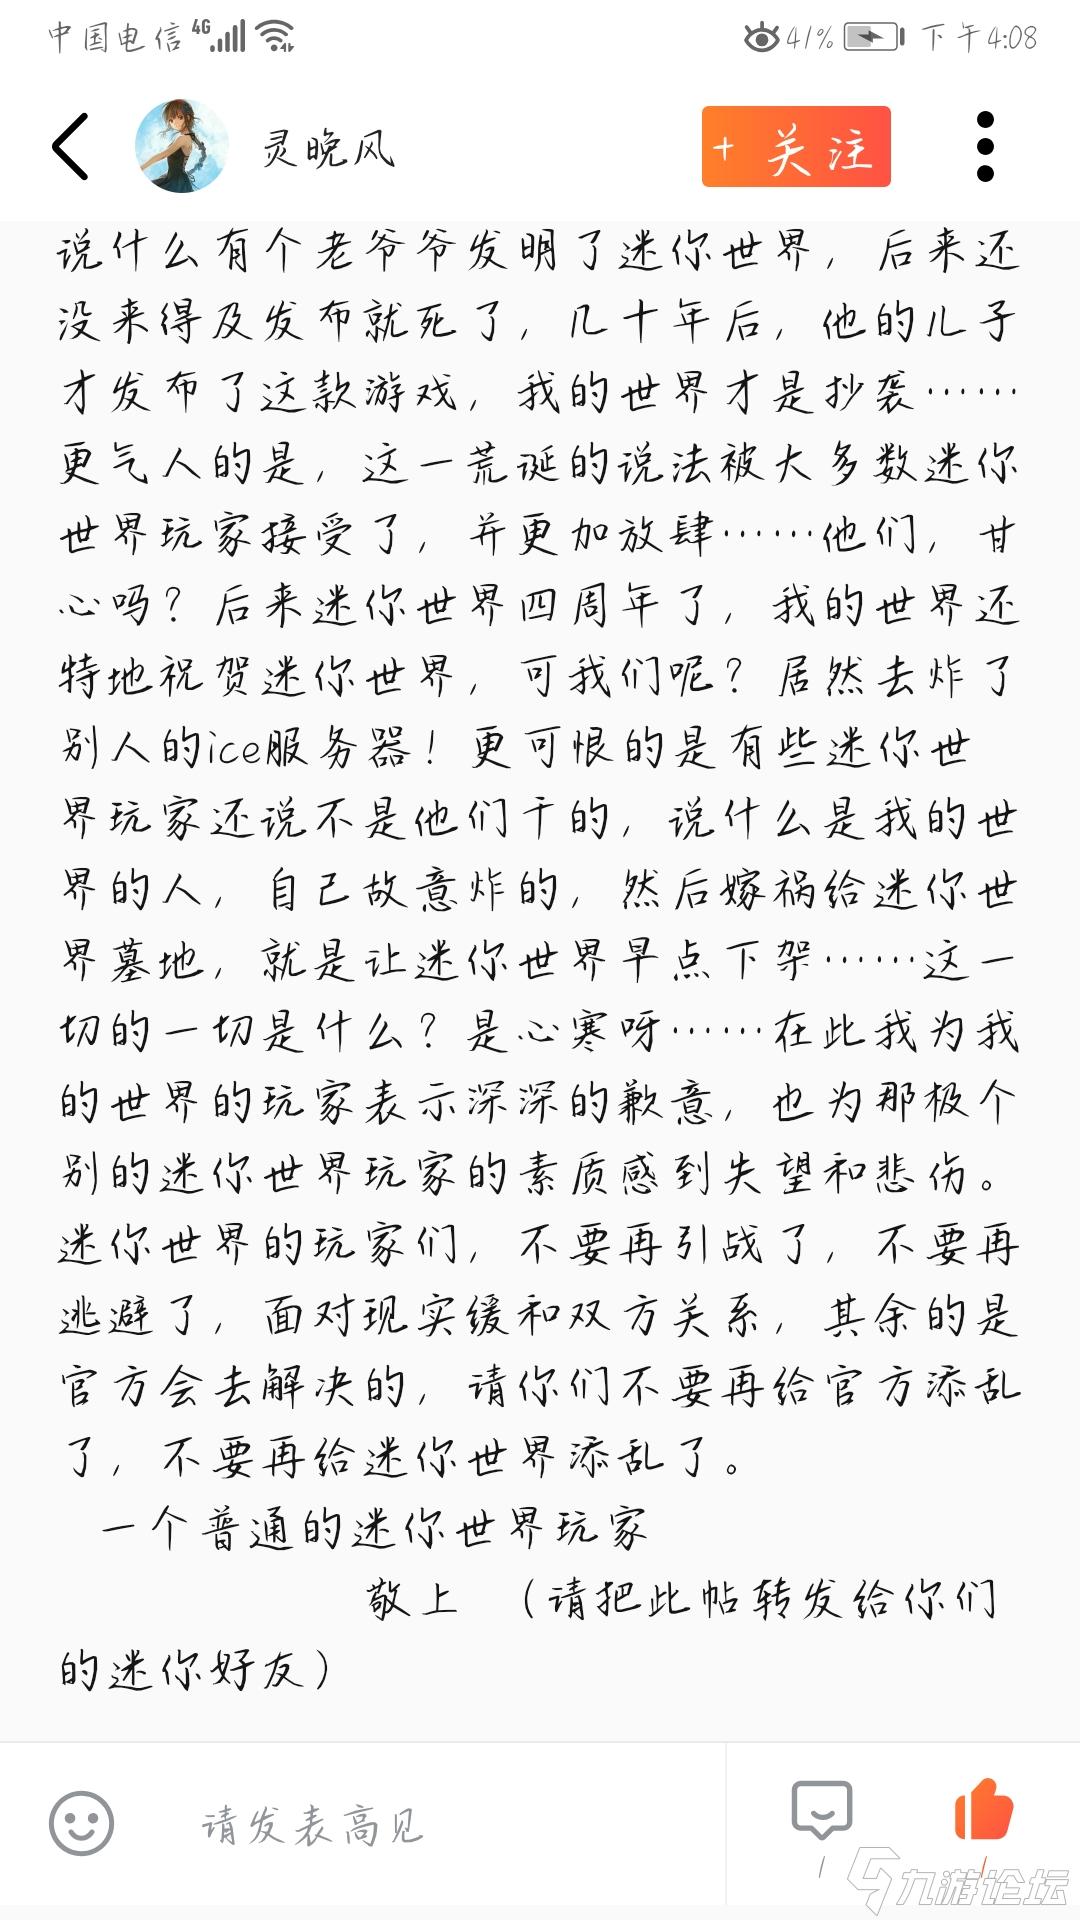 中国电信 4G 41% 下午4:08
灵晚风 + 关注
说什么有个老爷爷发明了迷你世界，后来还
没来得及发布就死了，几十年后，他的儿子
才发布了这款游戏，我的世界才是抄袭……
更气人的是，这一荒诞的说法被大多数迷你
世界玩家接受了，并更加放肆……他们，甘
心吗？后来迷你世界四周年了，我的世界还
特地祝贺迷你世界，可我们呢？居然去炸了
别人的ice服务器！更可恨的是有些迷你世
界玩家还说不是他们干的，说什么是我的世
界的人，自己故意炸的，然后嫁祸给迷你世
界墓地，就是让迷你世界早点下架……这一
切的一切是什么？是心寒呀……在此我为我
的世界的玩家表示深深的歉意，也为那极个
别的迷你世界玩家的素质感到失望和悲伤。
迷你世界的玩家们，不要再引战了，不要再
逃避了，面对现实缓和双方关系，其余的是
官方会去解决的，请你们不要再给官方添乱
了，不要再给迷你世界添乱了。
一个普通的迷你世界玩家
敬上 （请把此帖转发给你们
的迷你好友）
请发表高见
1 1
九游论坛